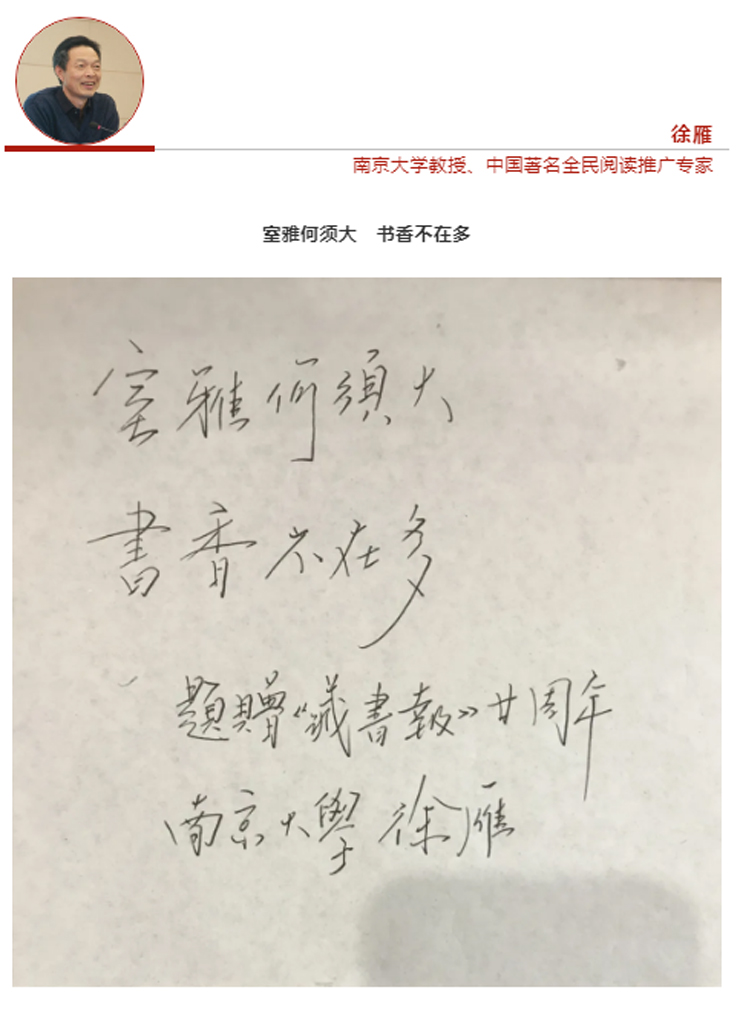 徐雁
南京大学教授、中国著名全民阅读推广专家
室雅何须大　书香不在多
室雅何須大
書香不在多
題贈《藏書報》廿周年
南京大學 徐雁